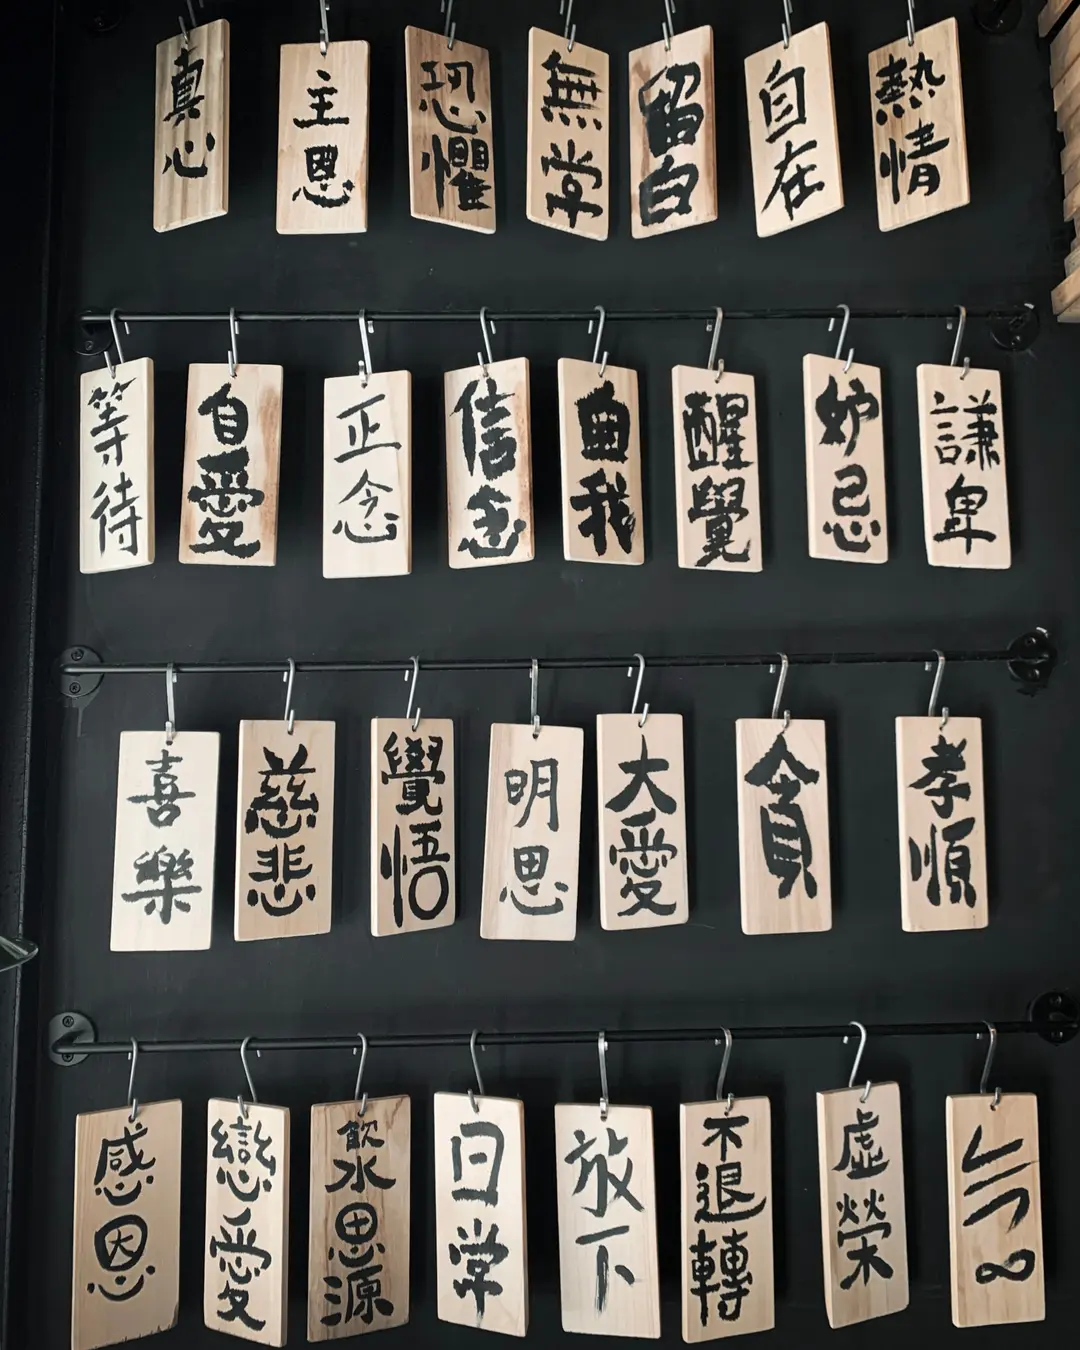 真心
主恩
恐懼
無常
留白
自在
熱情
等待
自愛
正念
信念
自我
醒覺
妒忌
謙卑
喜樂
慈悲
覺悟
明思
大愛
貪
孝順
感恩
戀愛
飲水思源
日常
放下
不退轉
虛榮